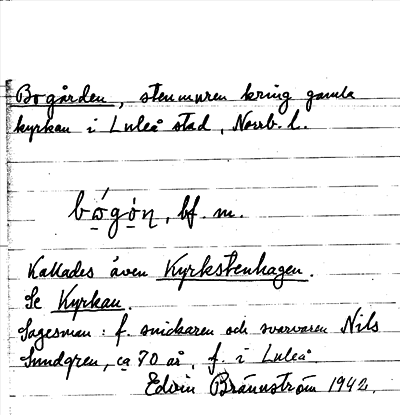 Bogården, stenmuren kring gamla
kyrkan i Luleå stad, Norrb. l.
bǫ́gǫ̀n, bf. m.
Kallades även Kyrkstenhagen.
Se Kyrkan.
Sagesman: f. snickaren och svarvaren Nils
Sundgren, ca 70 år, f. i Luleå
Edvin Brännström 1942.